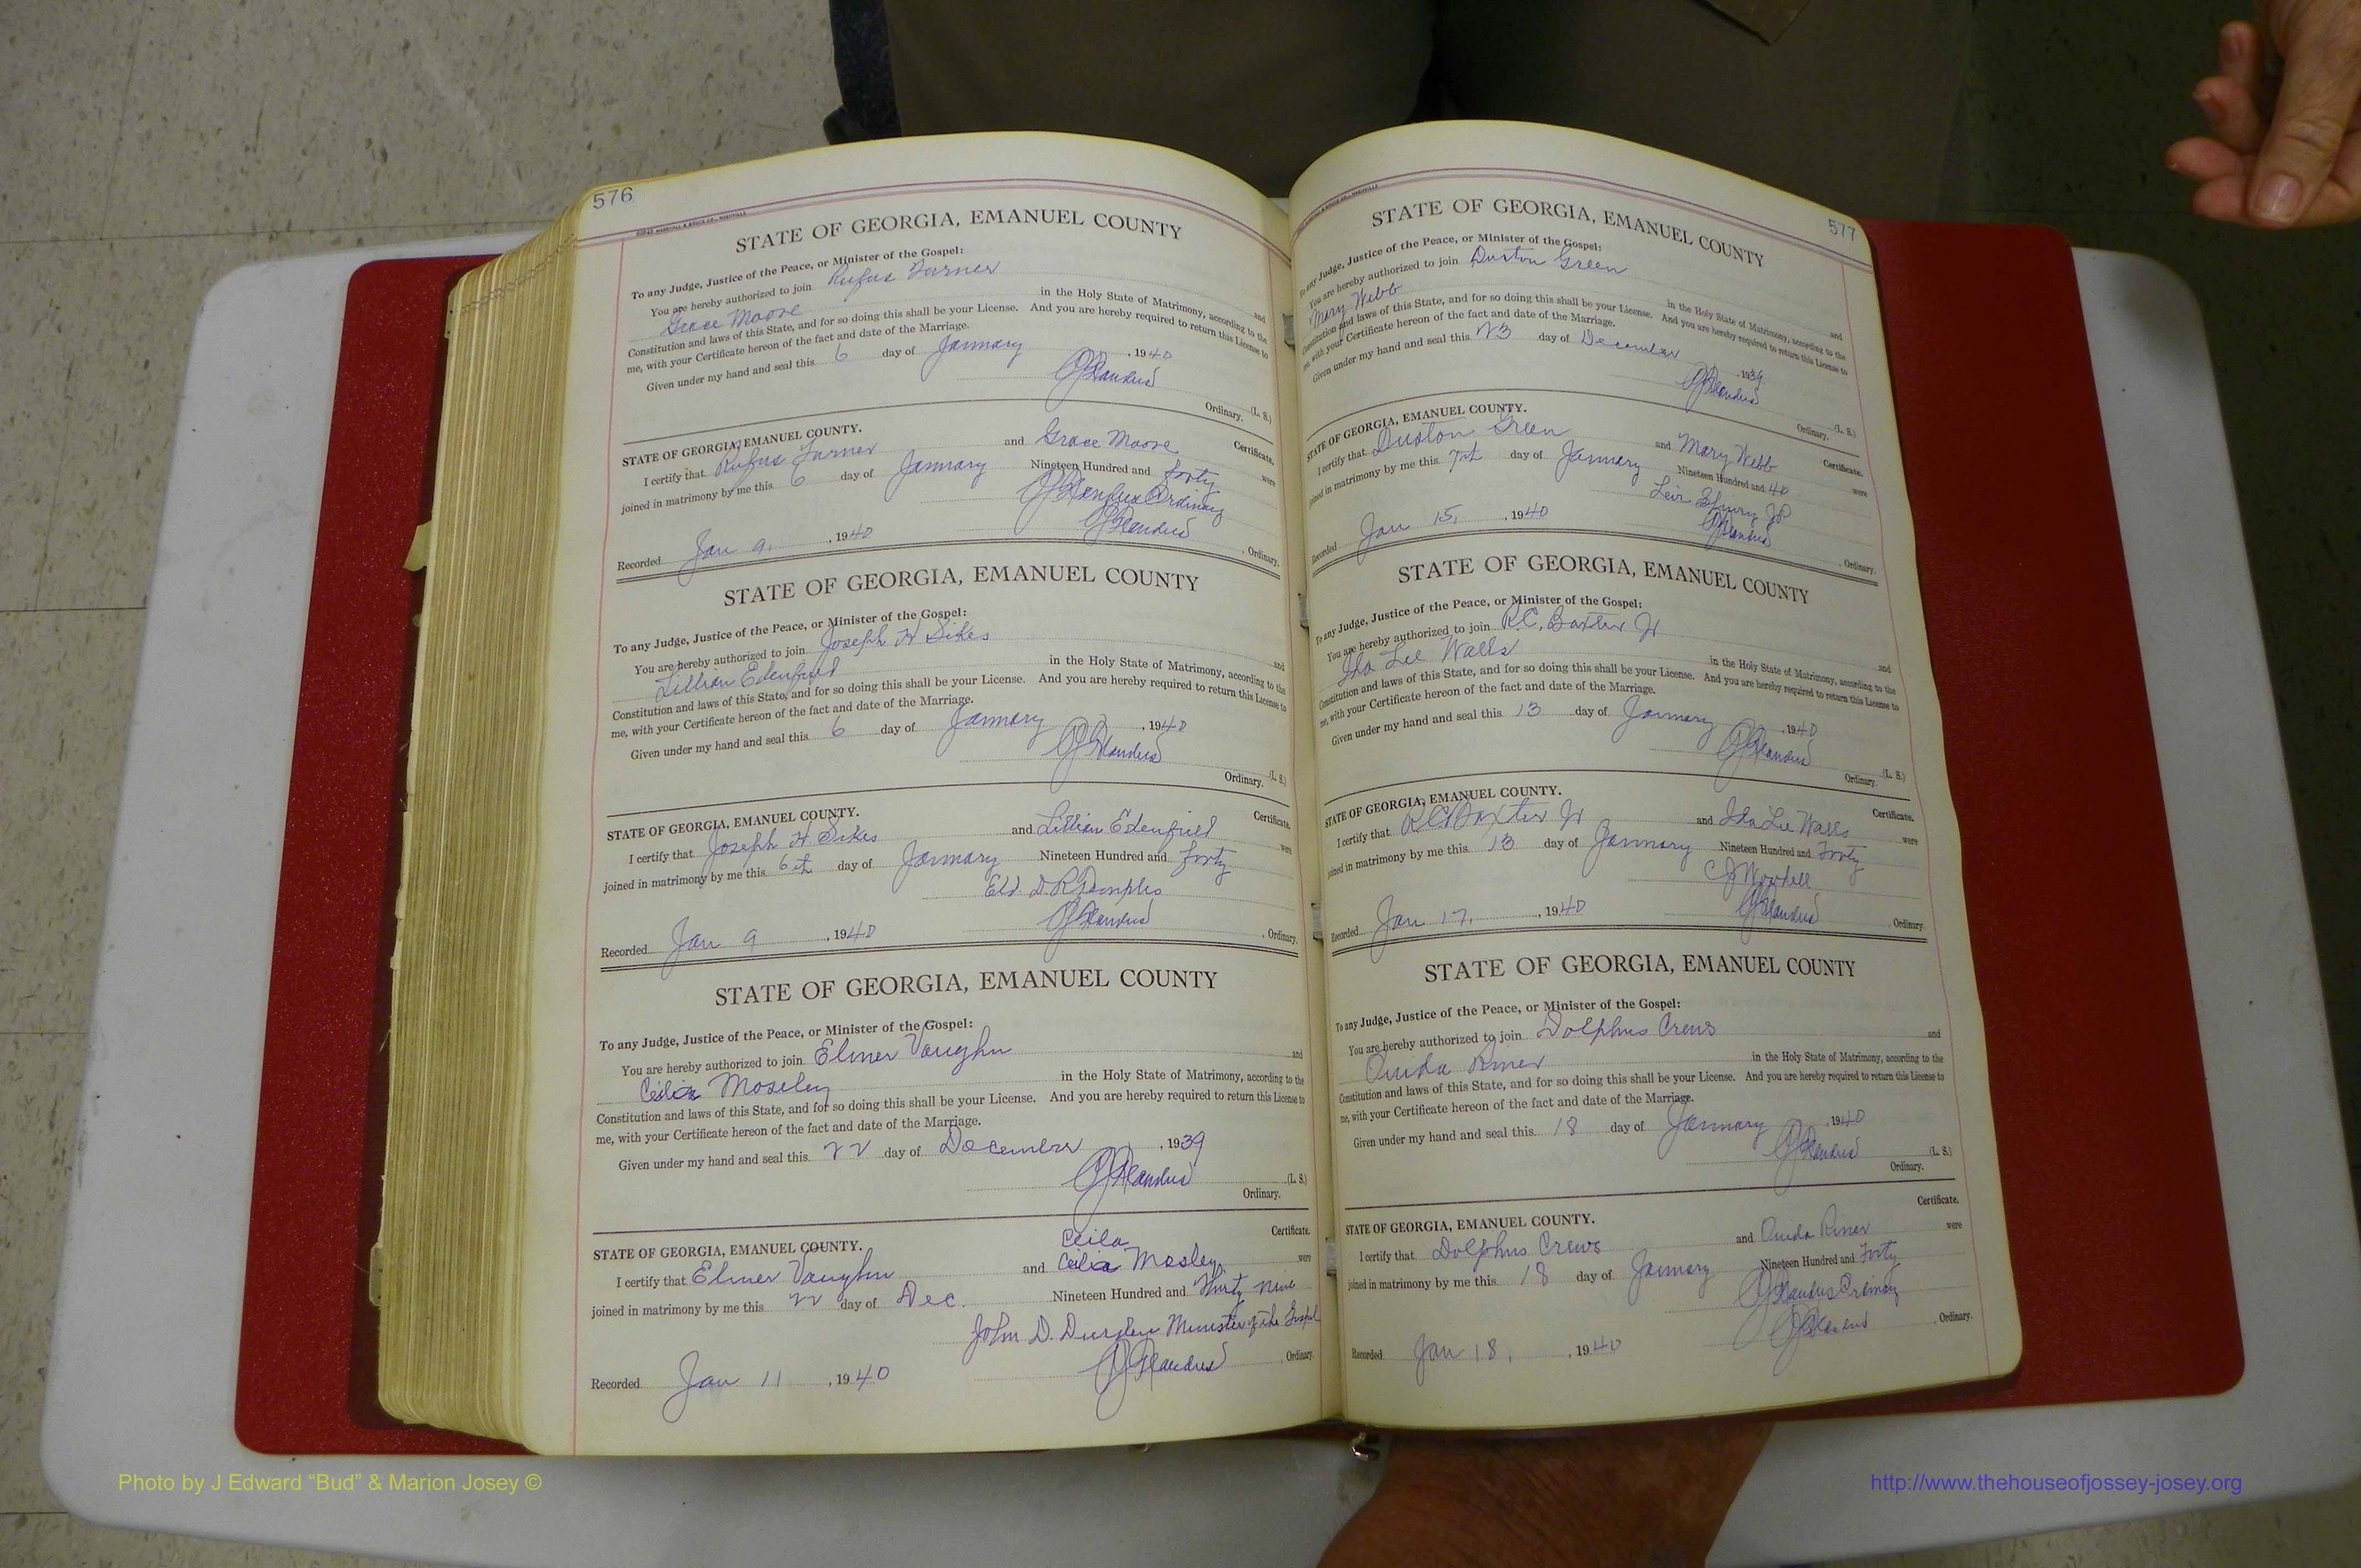 576
STATE OF GEORGIA, EMANUEL COUNTY
To any Judge, Justice of the Peace, or Minister of the Gospel:
You are hereby authorized to join Rufus Turner and
Grace Moore in the Holy State of Matrimony, according to the
Constitution and laws of this State, and for so doing this shall be your License. And you are hereby required to return this License to
me, with your Certificate hereon of the fact and date of the Marriage.
Given under my hand and seal this 6 day of January, 1940
(L. S.)
Ordinary.
STATE OF GEORGIA, EMANUEL COUNTY. Certificate.
I certify that Rufus Turner and Grace Moore were
joined in matrimony by me this 6 day of January Nineteen Hundred and forty
Ordinary
Recorded Jan 9, 1940, Ordinary.
STATE OF GEORGIA, EMANUEL COUNTY
To any Judge, Justice of the Peace, or Minister of the Gospel:
You are hereby authorized to join Joseph H Sikes and
Lillian Edenfield in the Holy State of Matrimony, according to the
Constitution and laws of this State, and for so doing this shall be your License. And you are hereby required to return this License to
me, with your Certificate hereon of the fact and date of the Marriage.
Given under my hand and seal this 6 day of January, 1940
(L. S.)
Ordinary.
STATE OF GEORGIA, EMANUEL COUNTY. Certificate.
I certify that Joseph H. Sikes and Lillian Edenfield were
joined in matrimony by me this 6th day of January Nineteen Hundred and forty
Eld. D. R.
Recorded Jan 9, 1940, Ordinary.
STATE OF GEORGIA, EMANUEL COUNTY
To any Judge, Justice of the Peace, or Minister of the Gospel:
You are hereby authorized to join Elmer Vaughn and
Ceilia Moseley in the Holy State of Matrimony, according to the
Constitution and laws of this State, and for so doing this shall be your License. And you are hereby required to return this License to
me, with your Certificate hereon of the fact and date of the Marriage.
Given under my hand and seal this 22 day of December, 1939
(L. S.)
Ordinary.
Ceila Certificate.
STATE OF GEORGIA, EMANUEL COUNTY.
I certify that Elmer Vaughn and Ceilia Mosley were
joined in matrimony by me this 22 day of Dec. Nineteen Hundred and Thirty nine
John D. Durden Minister of the Gospel
Recorded Jan 11, 1940, Ordinary.
577
STATE OF GEORGIA, EMANUEL COUNTY
To any Judge, Justice of the Peace, or Minister of the Gospel:
You are hereby authorized to join Duston Green and
Mary Webb in the Holy State of Matrimony, according to the
Constitution and laws of this State, and for so doing this shall be your License. And you are hereby required to return this License to
me, with your Certificate hereon of the fact and date of the Marriage.
Given under my hand and seal this 23 day of December, 1939
(L. S.)
Ordinary.
STATE OF GEORGIA, EMANUEL COUNTY. Certificate.
I certify that Duston Green and Mary Webb were
joined in matrimony by me this 7th day of January Nineteen Hundred and 40
JP
Recorded Jan 15, 1940, Ordinary.
STATE OF GEORGIA, EMANUEL COUNTY
To any Judge, Justice of the Peace, or Minister of the Gospel:
You are hereby authorized to join R.C. Baxter Jr and
Ida Lee Walls in the Holy State of Matrimony, according to the
Constitution and laws of this State, and for so doing this shall be your License. And you are hereby required to return this License to
me, with your Certificate hereon of the fact and date of the Marriage.
Given under my hand and seal this 13 day of January, 1940
(L. S.)
Ordinary.
STATE OF GEORGIA, EMANUEL COUNTY. Certificate.
I certify that R C Baxter Jr and Ida Lee Walls were
joined in matrimony by me this 13 day of January Nineteen Hundred and Forty
Recorded Jan 17, 1940, Ordinary.
STATE OF GEORGIA, EMANUEL COUNTY
To any Judge, Justice of the Peace, or Minister of the Gospel:
You are hereby authorized to join Dolphus Crews and
Ouida Riner in the Holy State of Matrimony, according to the
Constitution and laws of this State, and for so doing this shall be your License. And you are hereby required to return this License to
me, with your Certificate hereon of the fact and date of the Marriage.
Given under my hand and seal this 18 day of January, 1940
(L. S.)
Ordinary.
Certificate.
STATE OF GEORGIA, EMANUEL COUNTY.
I certify that Dolphus Crews and Ouida Riner were
joined in matrimony by me this 18 day of January Nineteen Hundred and Forty
Ordinary
Recorded Jan 18, 1940, Ordinary.
Photo by J Edward “Bud” & Marion Josey ©
http://www.thehouseofjossey-josey.org